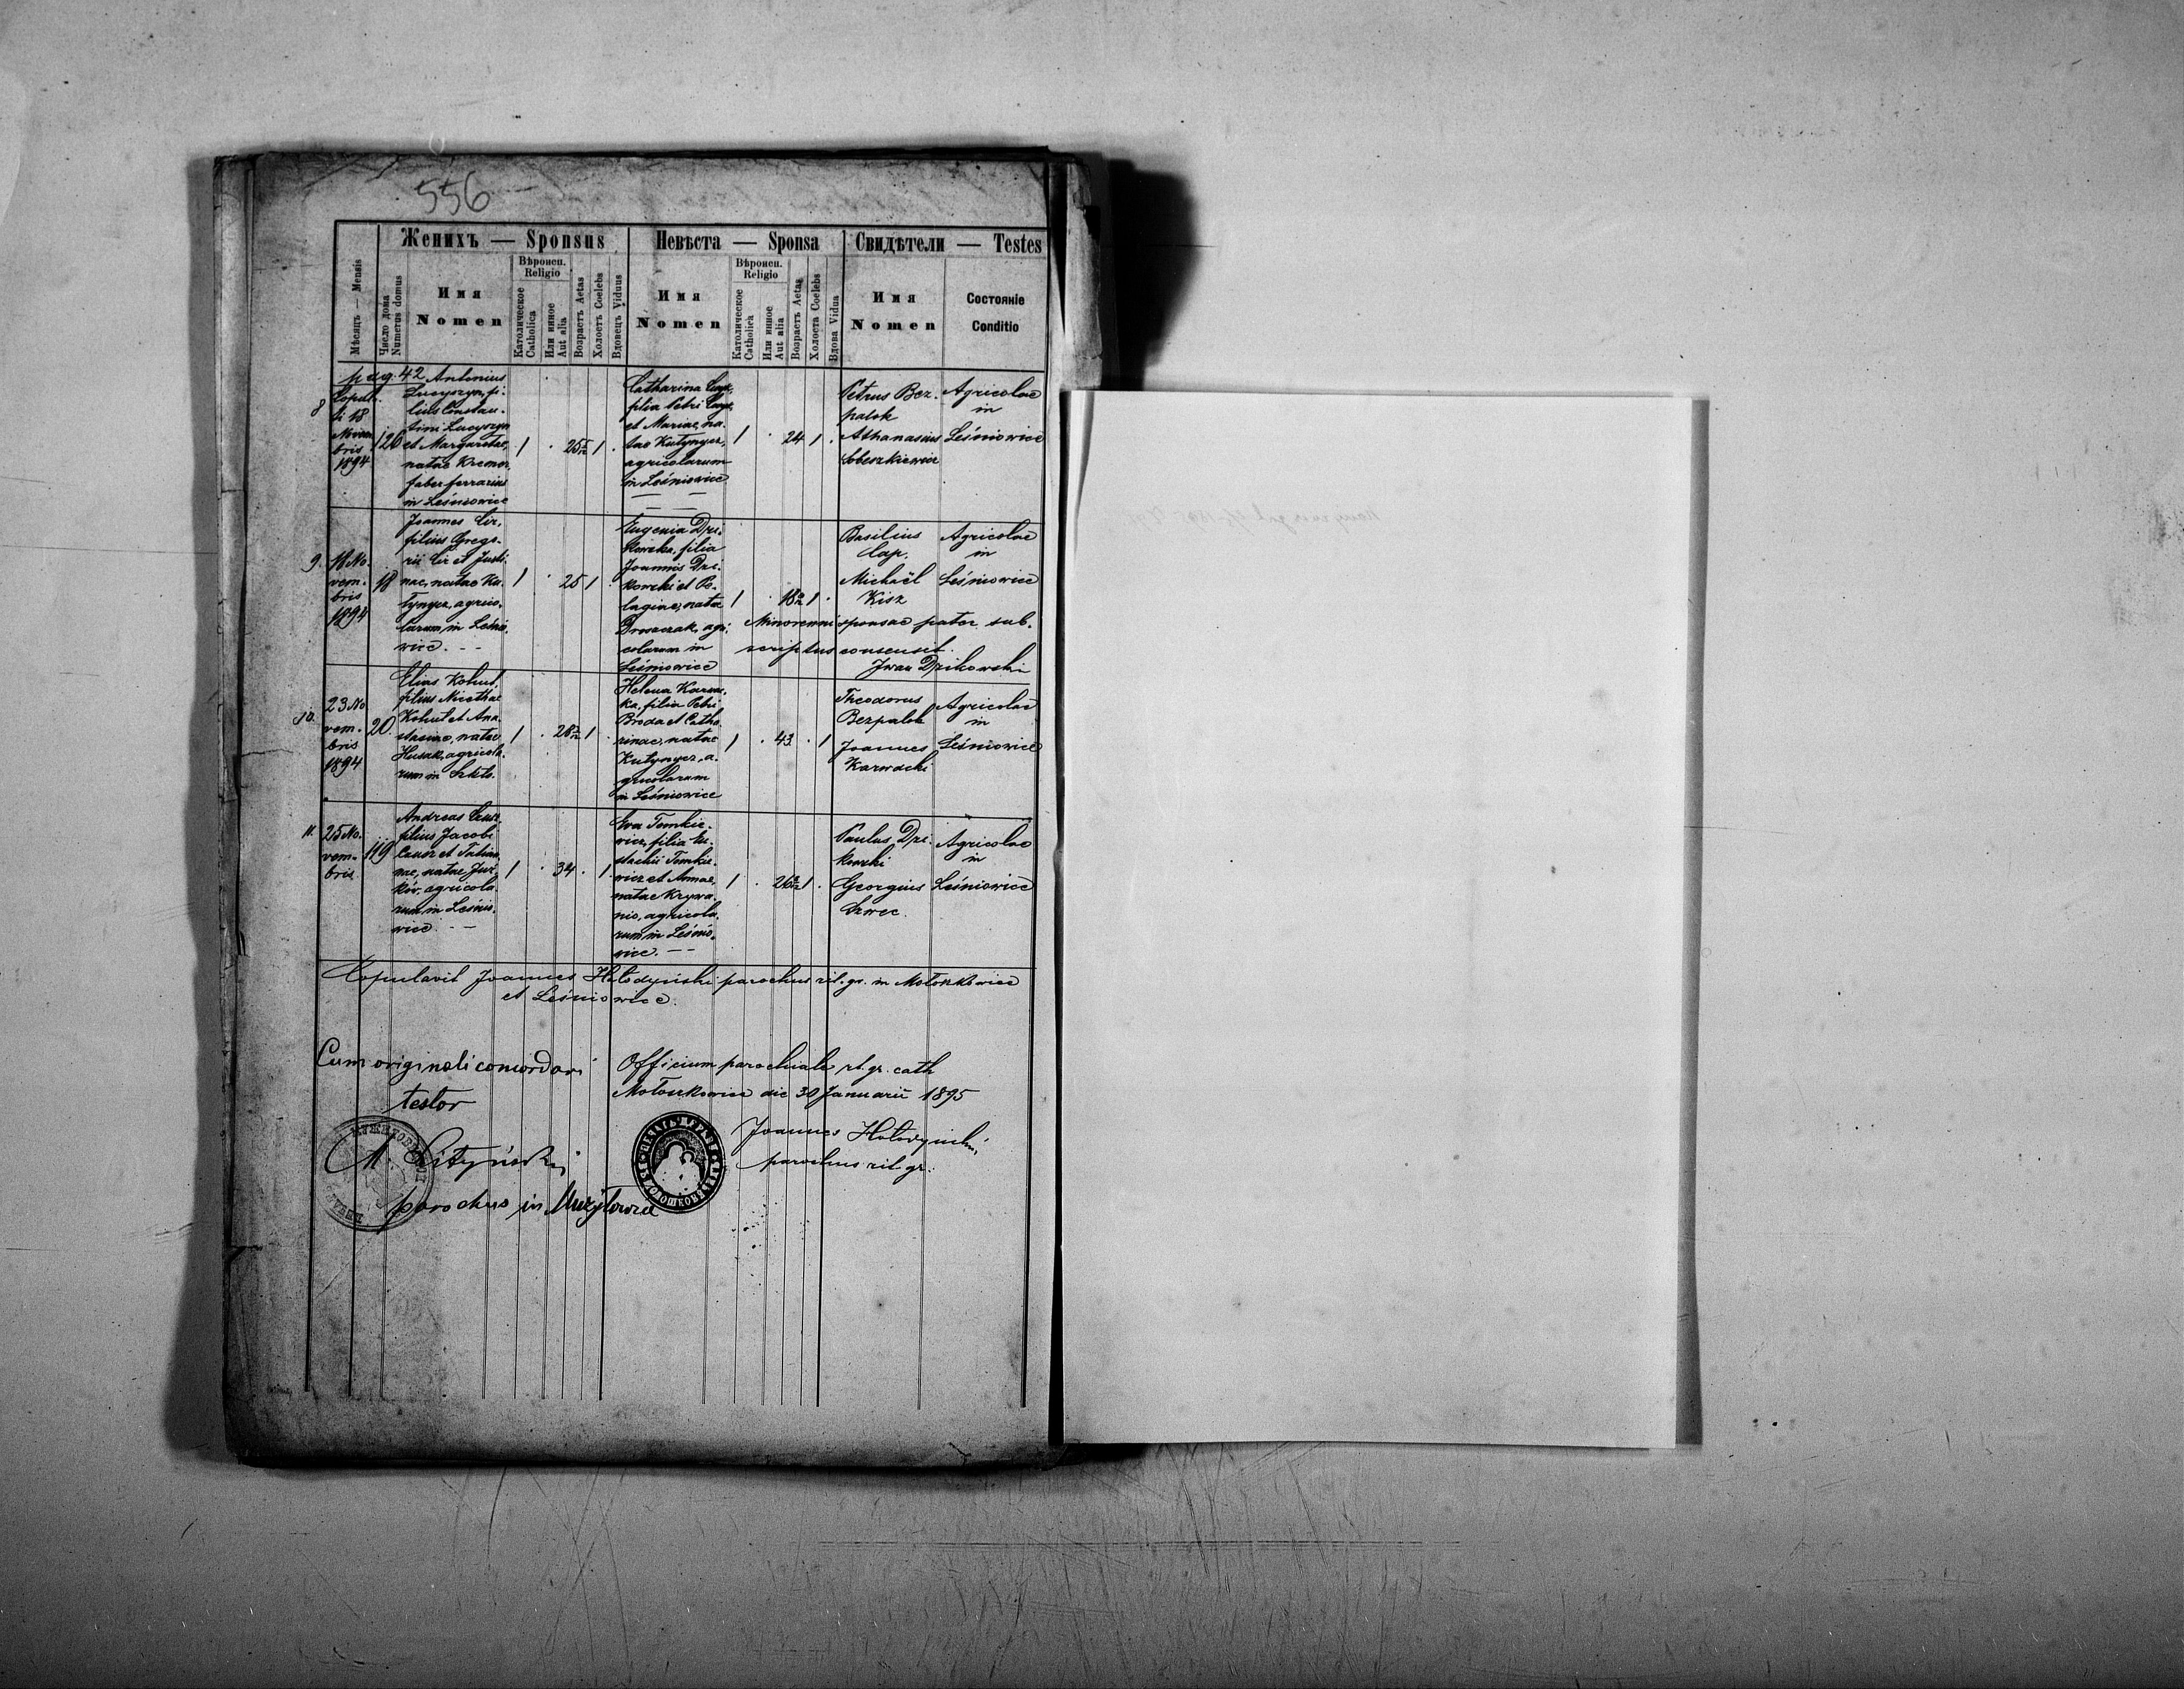 556
Женихъ — Sponsus
Невѣста — Sponsa
Свидѣтели — Testes
Мѣсяцъ — Mensis
Число дома
Numerus domus
Имя
Nomen
Вѣроисп.
Religio
Католическое
Catholica
Или инное
Aut alia
Возрастъ Aetas
Холостъ Coelebs
Вдовецъ Viduus
Имя
Nomen
Вѣроисп.
Religio
Католическое
Catholica
Или инное
Aut alia
Возрастъ Aetas
Холоста Coelebs
Вдова Vidua
Имя
Nomen
Состояніе
Conditio
pag. 42
8
Copula-
ti 18
Novem
bris
1894
126
Antonius
Lucyszyn, fi-
lius Constan-
tini Lucyszyn
et Margaretae,
natae Kremer,
faber ferrarius
in Leśniowice
1
25
1
Catharina
filia Petri
et Mariae, na-
tae Kutynycz,
agricolarum
in Leśniowice
1
24
1
Petrus Bez-
palok
Athanasius
Sobeszkiewicz
Agricolae
in
Leśniowice
9.
18 No-
vem-
bris
1894
18
Joannes Cir,
filius Grego-
rii Cir et Justi-
nae, natae Ku-
tynycz, agrico-
larum in Leśnio-
wice. - -
1
25
1
Eugenia Dzi-
kowska, filia
Joannis Dzi-
kowski et Pe-
lagiae, natae
agri-
colarum in
Leśniowice
1
18
1
Basilius
Cap.
Michaël
Kisz
Agricolae
in
Leśniowice
Minorenni sponsae pater sub-
scriptus consensit.
Iwan Dzikowski
10.
23 No
vem-
bris
1894
20.
Elias Kohut,
filius Nicethae
Kohut et Ana-
stasiae, natae
Husak, agricola-
rum in Szkło.
1
28
1
Helena Karwac-
ka, filia Petri
Broda et Catha-
rinae, natae
Kutynycz, a-
gricolarum
in Leśniowice
1
43
1
Theodorus
Bezpalok
Joannes
Karwacki
Agricolae
in
Leśniowice
11.
25 No-
vem-
bris
119
Andreas
filius Jacobi
et Tatian-
nae, natae Jur-
ków, agricola-
rum in Leśnio-
wice. - -
1
34
1
Eva Tomkie-
wicz, filia Eu-
stachii Tomkie-
wicz et Annae,
natae Krywa-
nio, agricola-
rum in Leśnio-
wice. - -
1
26
1
Paulus Dzi-
kowski
Georgius
Szwec.
Agricolae
in
Leśniowice
Copulavit Joannes Hołodyński parochus rit. gr. in Mołoszkowice
et Leśniowice.
Cum originali concordari
testor
M. Lityński
parochus in Mużyłowice
Officium parochiale rit. gr. cath
Mołoszkowice die 30 Januarii 1895
Joannes Hołodyński,
parochus rit. gr.